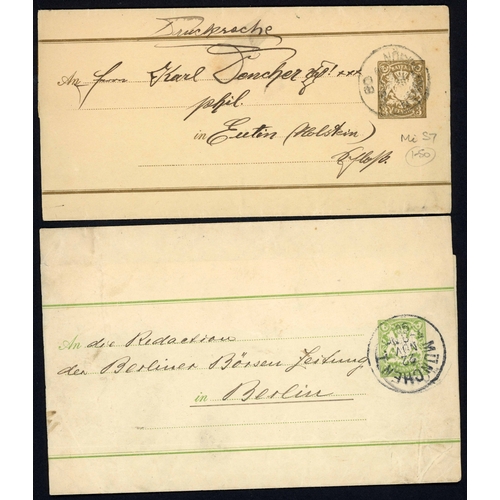 Drucksache
An Herrn Karl
phil.
in Eutin (Holstein)
Mi S7
1-50
An die Redaction
der Berliner Börsen Zeitung
in Berlin
MÜNCHEN I
22
NOV